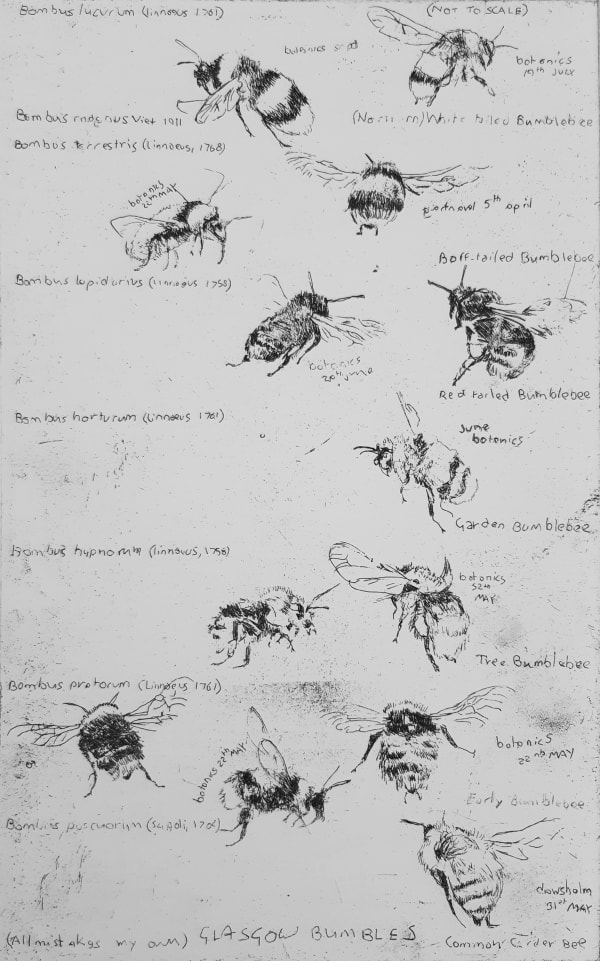 Bombus lucurum (Linnaeus 1761)
(NOT TO SCALE)
botanics
botonics
19th JULY
Bombus magnus Viet 1911
(Northern) White tailed Bumblebee
Bombus terrestris (Linnaeus, 1768)
botonics
22nd MAY
5th april
Boff-tailed Bumblebee
Bombus lapidarius (Linnaeus 1758)
botonics
20th June
Red tailed Bumblebee
Bombus horturum (Linnaeus 1761)
June
botonics
Garden Bumblebee
Bombus hypnorum (Linnaeus, 1758)
botonics
22nd
MAY
Tree Bumblebee
Bombus pratorum (Linnaeus 1761)
botonics 22nd MAY
botonics
22nd MAY
Early Bumblebee
Bombus pascuorum (Scopoli, 1763)
31st MAY
(All mistakes my own) GLASGOW BUMBLES
Common Carder Bee